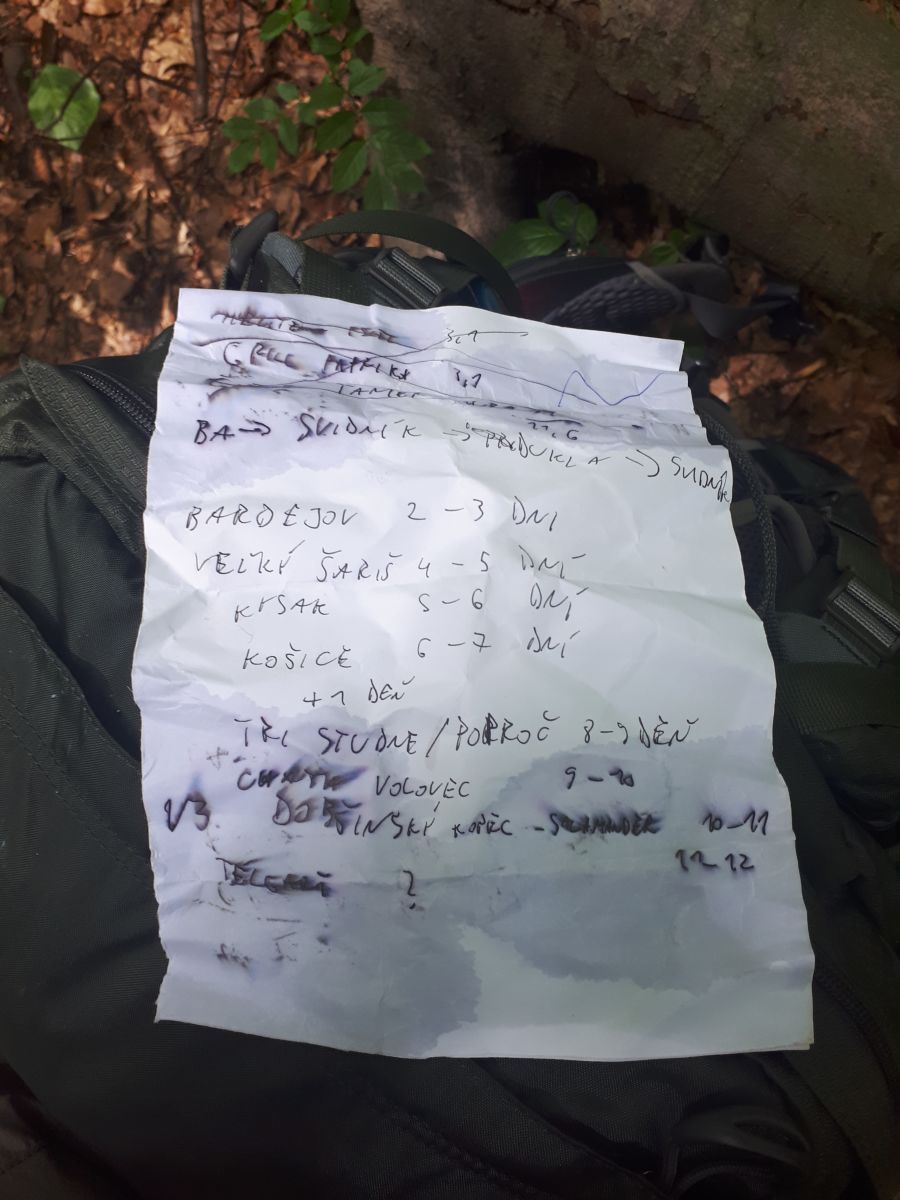 GRILL PAPRIKA 3,1
BA → SVIDNÍK → PRDUKLA → SVIDNÍK
BARDEJOV 2 - 3 DNI
VEĽKÝ ŠARIŠ 4 - 5 DNÍ
KYSAK 5 - 6 DNÍ
KOŠICE 6 - 7 DNÍ
+ 1 DEŇ
TRI STUDNE / POPROČ 8 - 9 DEŇ
CHATA VOLOVEC 9 - 10
V3 DOBŠINSKÝ KOPEC - 10 - 11
TELGÁRT ? 11 - 12